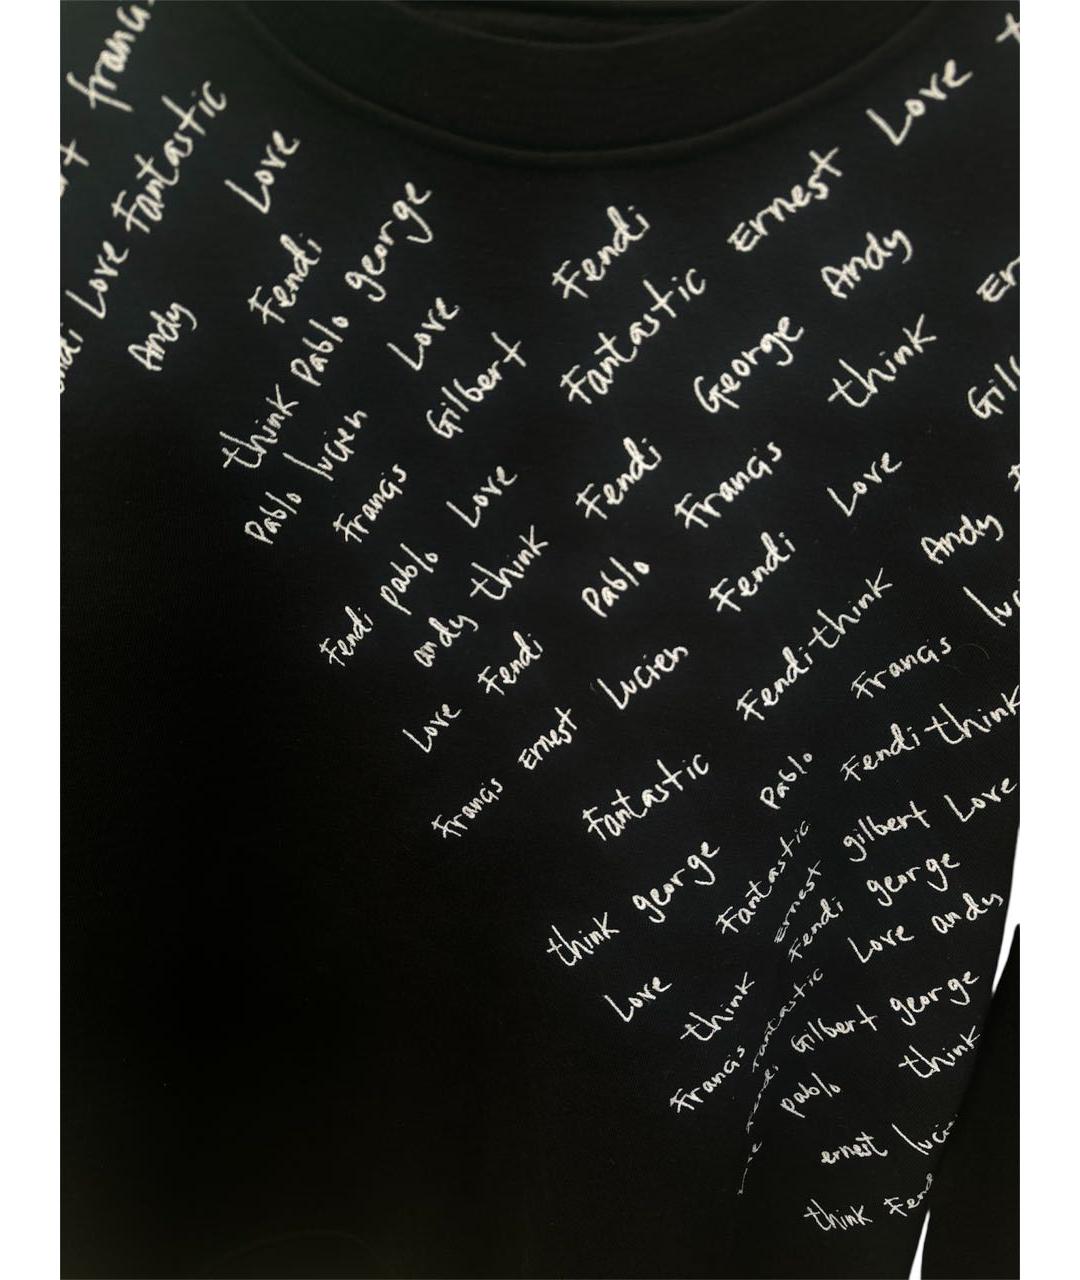 Francis
Love Fantastic
Andy
Love
Fendi
think Pablo george
Pablo lucien
Love
Gilbert
Francis
Love
Fendi pablo
andy think
Love Fendi
Francis Ernest Lucien
Fendi
Fantastic
Fendi
Pablo
Ernest
Love
George
Andy
Francis
think
Fendi
Love
Fendi think
Andy
Francis
Fantastic
Pablo
Fendi think
think george
Fantastic
gilbert Love
Ernest
Fendi
george
Love andy
Love
think
Fantastic
Gilbert george
Francis
pablo
think
ernest
think